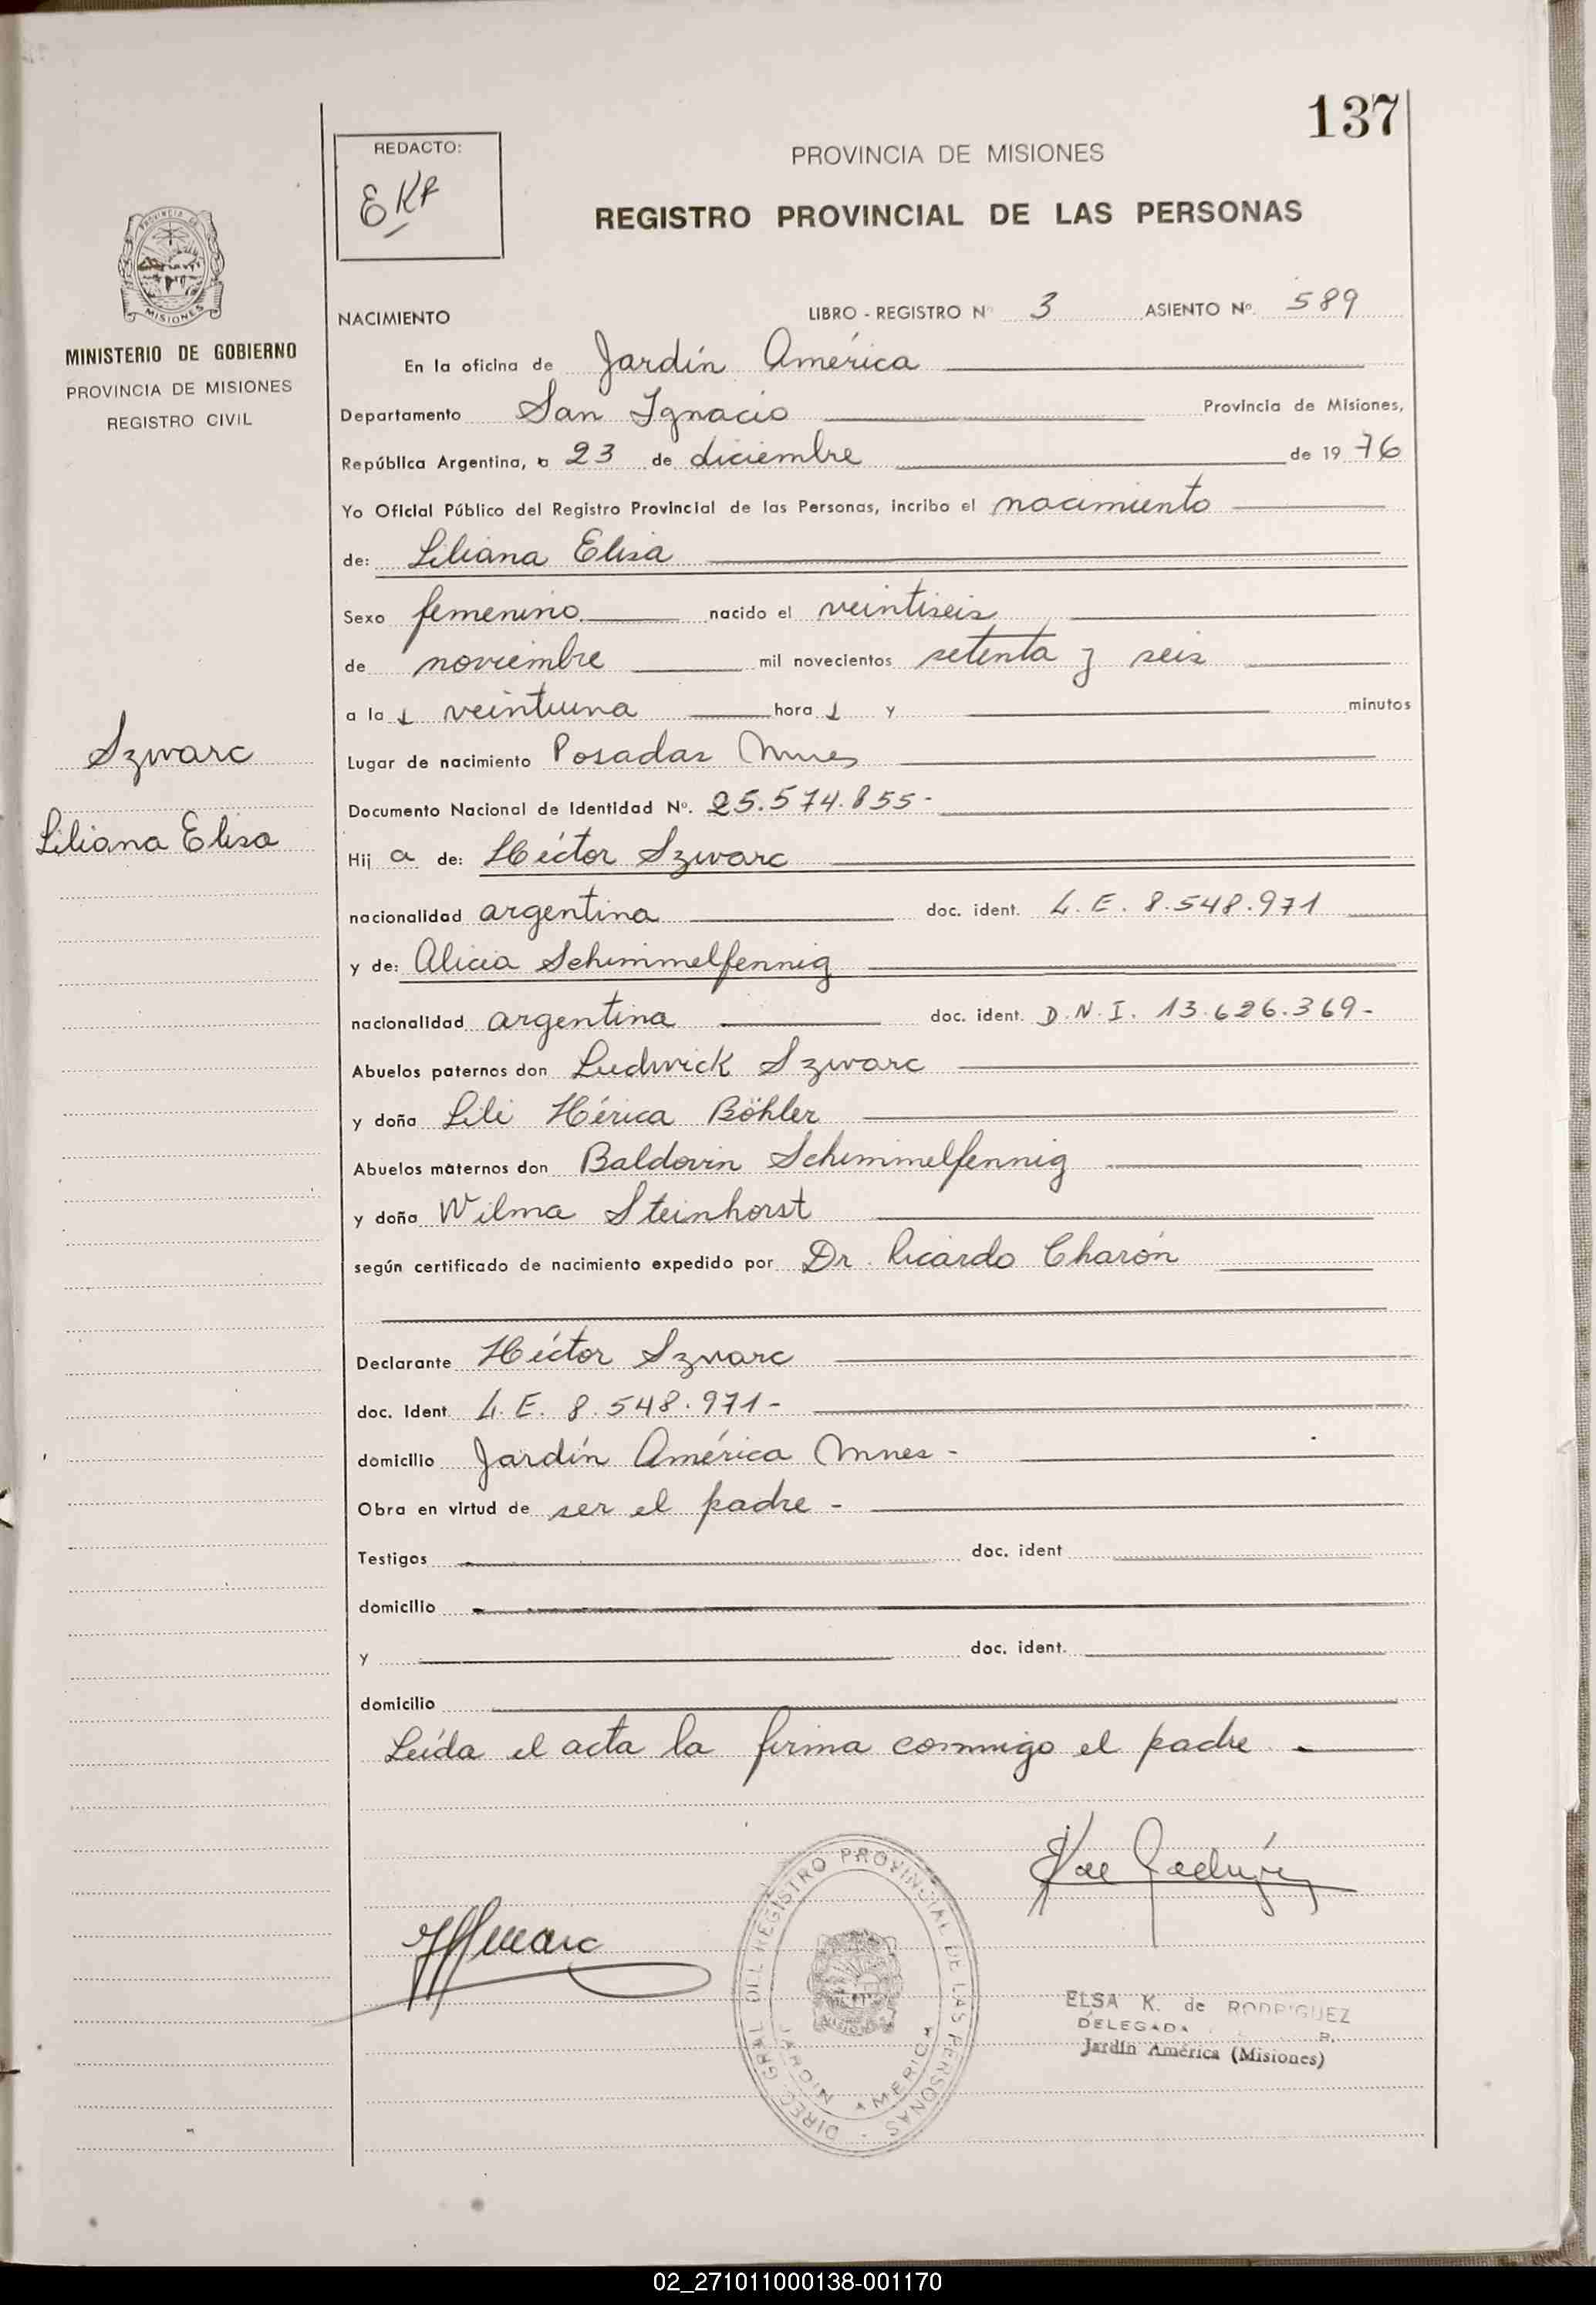 137
REDACTO:
EKR
PROVINCIA DE MISIONES
REGISTRO PROVINCIAL DE LAS PERSONAS
MISIONES
MINISTERIO DE GOBIERNO
PROVINCIA DE MISIONES
REGISTRO CIVIL
NACIMIENTO LIBRO - REGISTRO Nº 3 ASIENTO Nº 589
En la oficina de Jardín América
Departamento San Ignacio Provincia de Misiones,
República Argentina, a 23 de diciembre de 1976
Yo Oficial Público del Registro Provincial de las Personas, incribo el nacimiento
de: Liliana Elisa
Sexo femenino nacido el veintiseis
de noviembre mil novecientos setenta y seis
a las veintiuna horas y minutos
Szwarc
Lugar de nacimiento Posadas Mnes
Documento Nacional de Identidad Nº. 25.574.855-
Liliana Elisa
Hija de: Héctor Szwarc
nacionalidad argentina doc. ident. L.E. 8.548.971
y de: Alicia Schimmelfennig
nacionalidad argentina doc. ident. D.N.I. 13.626.369-
Abuelos paternos don Ludwick Szwarc
y doña Lili Hérica Böhler
Abuelos maternos don Baldovin Schimmelfennig
y doña Wilma Steinhorst
según certificado de nacimiento expedido por Dr. Ricardo Charón
Declarante Héctor Szwarc
doc. Ident L.E. 8.548.971-
domicilio Jardín América Mnes-
Obra en virtud de ser el padre-
Testigos doc. ident
domicilio
y doc. ident.
domicilio
Leída el acta la firma conmigo el padre.-
DIREC. GRAL. DEL REGISTRO PROVINCIAL DE LAS PERSONAS
JARDIN AMERICA
ELSA K. de RODRIGUEZ
DELEGADA
Jardín América (Misiones)
02_271011000138-001170